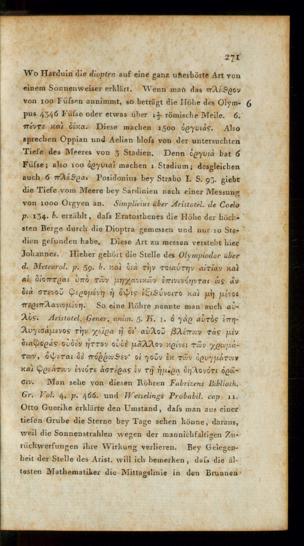 271
Wo Harduin die dioptra auf eine ganz unerhörte Art von
einem Sonnenweiser erklärt. Wenn man das πλέθρον
von 100 Füſsen annimmt, so beträgt die Höhe des Olym- 6
pus 4346 Füſse oder etwas über 1½ römische Meile. 6.
πέντε καὶ δέκα. Diese machen 1500 ὀργυιάς. Also
sprechen Oppian und Aelian bloſs von der untersuchten
Tiefe des Meeres von 3 Stadien. Denn ὀργυιὰ hat 6
Füſse; also 100 ὀργυιαὶ machen 1 Stadium; desgleichen
auch 6 πλέθρα. Posidonius bey Strabo I. S. 93. giebt
die Tiefe vom Meere bey Sardinien nach einer Messung
von 1000 Orgyen an. Simplicius über Aristotel. de Coelo
p. 134. b. erzählt, daſs Eratosthenes die Höhe der höch-
sten Berge durch die Dioptra gemessen und nur 10 Sta-
dien gefunden habe. Diese Art zu messen versteht hier
Johannes. Hieher gehört die Stelle des Olympiodor über
d. Meteorol. p. 59. b. καὶ διὰ τὴν τοιαύτην αἰτίαν καὶ
αἱ διόπτραι ὑπὸ τῶν μηχανικῶν ἐπινενόηνται ὡς ἂν
διὰ στενοῦ φερομένη ἡ ὄψις ἐξισθύνοιτο καὶ μὴ μένοι
περιπλανωμένη. So eine Röhre nannte man auch αὐ-
λός. Aristotel. Gener. anim. 5. K. 1. ὁ γὰρ αὐτὸς ἐπη-
λυγισάμενος τὴν χεῖρα ἢ δι' αὐλοῦ βλέπων τὰς μὲν
διαφορὰς οὐδὲν ἧττον οὐδὲ μᾶλλον κρίνει τῶν χρωμά-
των, ὄψεται δὲ πόῤῥωθεν· οἱ γοῦν ἐκ τῶν ὀρυγμάτων
καὶ φρεάτων ἐνίοτε ἀστέρας ἐν τῇ ἡμέρᾳ δηλονότι ὁρῶ-
σιν. Man sehe von diesen Röhren Fabrizens Biblioth.
Gr. Vol. 4. p. 466. und Wesselings Probabil. cap. 11.
Otto Guerike erklärte den Umstand, daſs man aus einer
tiefen Grube die Sterne bey Tage sehen könne, daraus,
weil die Sonnenstrahlen wegen der mannichfaltigen Zu-
rückwerfungen ihre Wirkung verlieren. Bey Gelegen-
heit der Stelle des Arist. will ich bemerken, daſs die äl-
testen Mathematiker die Mittagslinie in den Brunnen